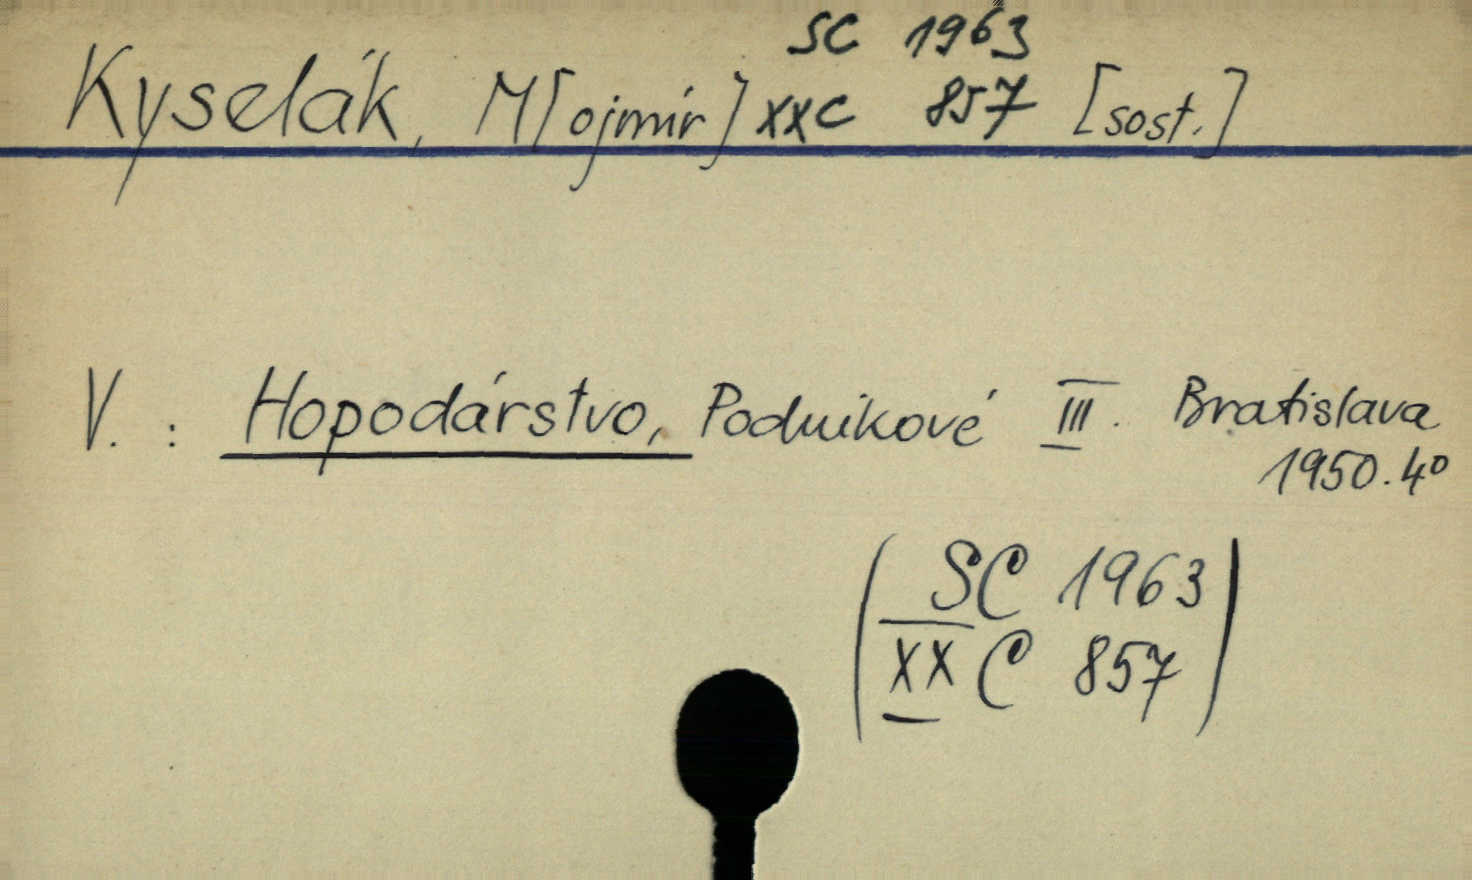 SC 1963
Kyselák, M[ojmír] XXC 857 [sost.]
V. : Hopodárstvo, Podnikové III. Bratislava
1950. 4°
(SC 1963
XX C 857)